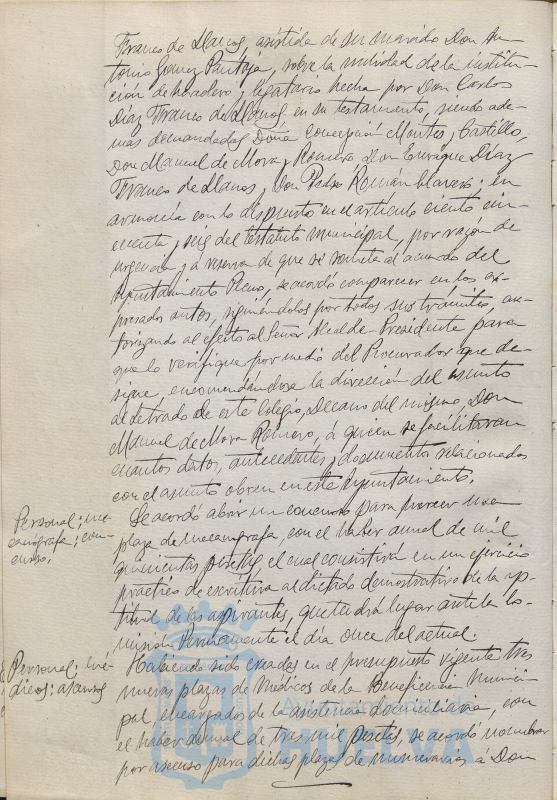 Franco de Llanos, asistida de su marido Don An-
tonio Gomez Pantoja, sobre la nulidad de la institu-
ción de heredero y legatario hecha por Don Carlos
Díaz Franco de Llanos, en su testamento, siendo ade-
mas demandados Doña Concepción Montes y Castillo,
Don Manuel de Mora y Romero, Don Enrique Díaz
Franco de Llanos y Don Pedro Román Clavero; en
armonía con lo dispuesto en el artículo ciento cin-
cuenta y seis del Estatuto municipal, por razón de
urgencia y á reserva de que se someta al acuerdo del
Ayuntamiento Pleno, se acordó comparecer en los ex-
presados autos, siguiéndolos por todos sus trámites, au-
torizando al efecto al Señor Alcalde-Presidente para
que lo verifique por medio del Procurador que de-
signe, encomendándose la dirección del asunto
al Letrado de este Colegio, Decano del mismo, Don
Manuel de Mora Romero, á quien se facilitaran
cuantos datos, antecedentes y documentos relacionados
con el asunto obren en este Ayuntamiento.
Personal; me-
canografa; con-
curso.
Se acordó abrir un concurso para proveer una
plaza de mecanografa, con el haber anual de mil
quinientas pesetas, el cual consistirá en un ejercicio
practico de escritura al dictado demostrativo de la ap-
titud de los aspirantes, que tendrá lugar ante la Co-
misión Permanente el día once del actual.
Personal; mé-
dicos: ascensos
Habiendo sido creadas en el presupuesto vigente tres
nuevas plazas de Médicos de la Beneficencia Munici-
pal, encargados de la asistencia domiciliaria, con
el haber anual de tres mil pesetas, se acordó nombrar
por ascenso para dichas plazas de numerarios á Don
Ayuntamiento de
HUELVA